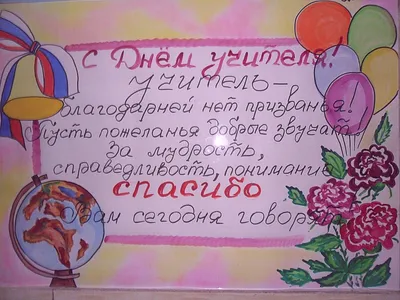 с Днём учителя!
учитель-
благодарней нет призванья!
Пусть пожеланья добрые звучат
За мудрость,
справедливость, понимание
спасибо
Вам сегодня говорят